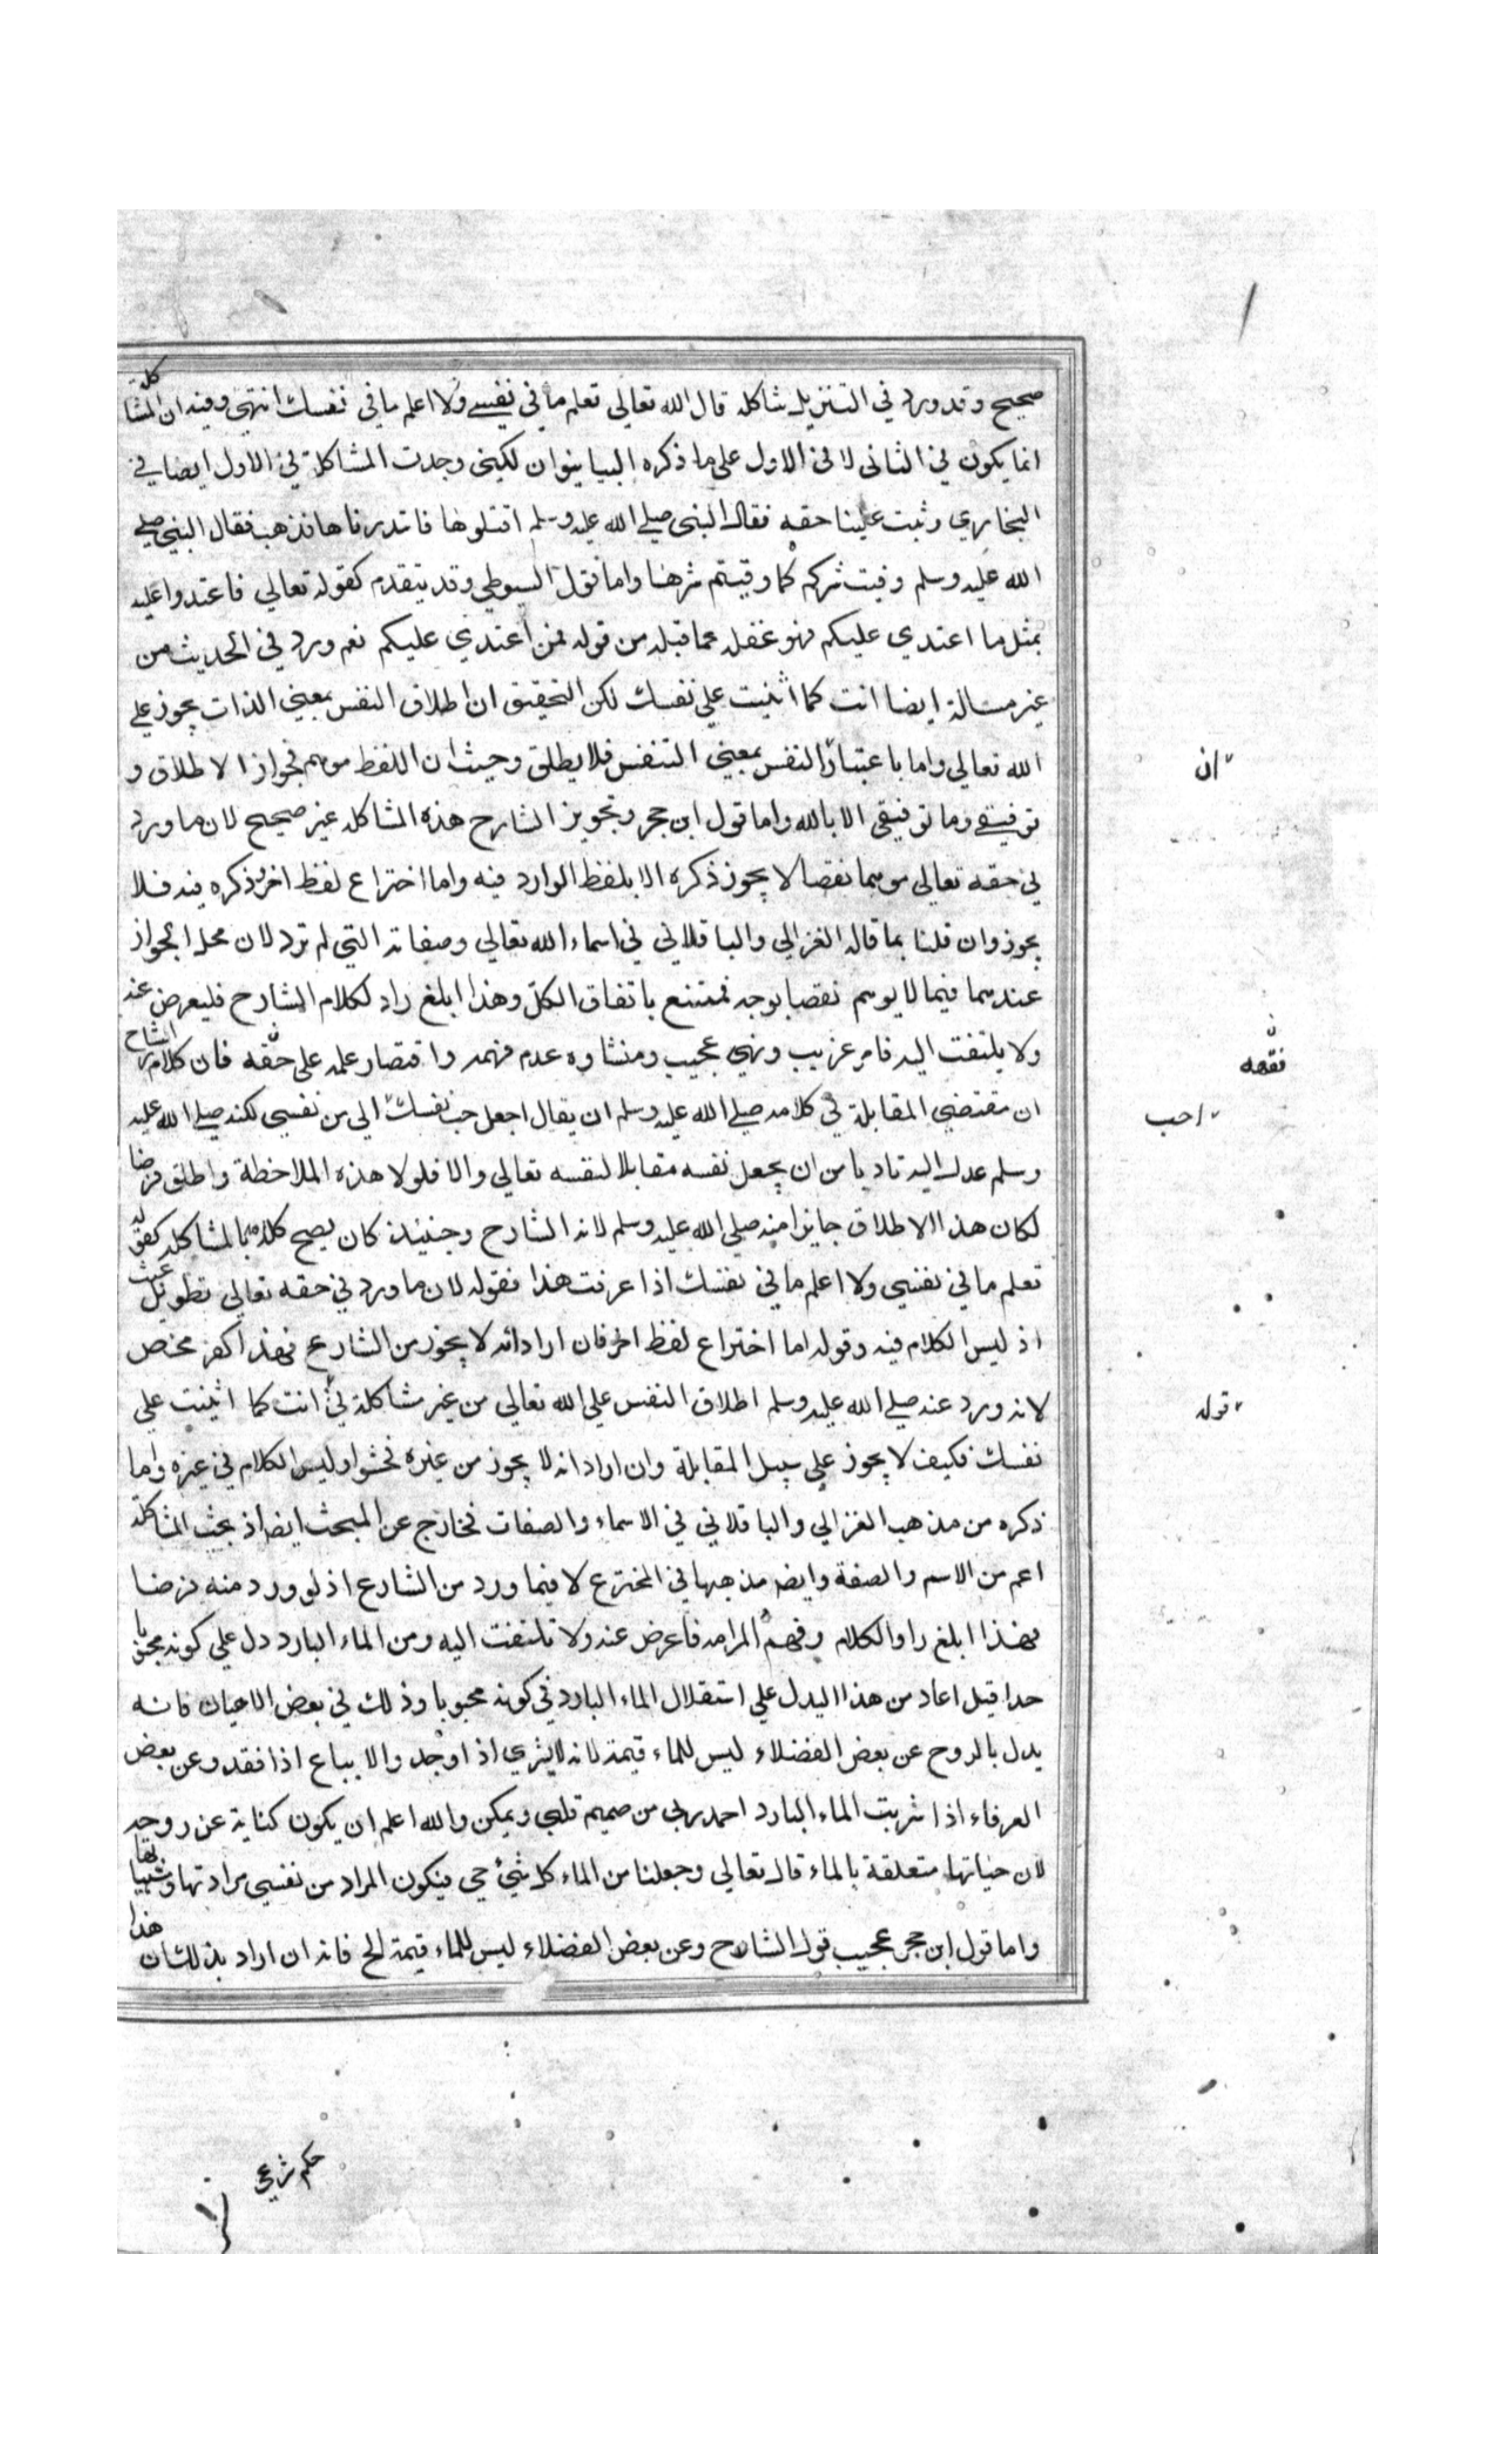 صحيح وقد ورد في التنزيل مشاكلة قال الله تعالي تعلم ما في نفسي ولا اعلم ما في نفسك انتهى وفيه ان المشاكلة
انما يكون في الثاني لا في الاول علي ما ذكره البيانيوان لكيني وجدت المشاكلة في الاول ايضا في
البخاري وثبت علينا حقه فقال النبي صلي الله عليه وسلم اقتلوها فابتدرناها فذهب فقال النبي صلي
الله عليه وسلم وقيت شركم كما وقيتم شرها واما قول السيوطي وقد يتقدم كقوله تعالي فاعتدوا عليه
بمثل ما اعتدي عليكم فهو غفله عما قبله من قوله فمن اعتدي عليكم نعم ورد في الحديث من
غير مسالة ايضا انت كما اثنيت علي نفسك لكن التحقيق ان اطلاق النفس بمعني الذات يجوز علي
الله تعالي واما باعتبار النفس بمعني التنفس فلا يطلق وحيث ان اللفظ موهم فجواز الاطلاق و
ان
توفيقي وما توفيقي الا بالله واما قول ابن حجر وتجويز الشارح هذه المشاكله غير صحيح لان ما ورد
في حقه تعالي موهما نقصا لا يجوز ذكره الا بلفظ الوارد فيه واما اختراع لفظ اخر وذكره فيه فلا
يجوز وان قلنا بما قاله الغزالي والباقلاني في اسماء الله تعالي وصفاته التي لم ترد لان محل الجواز
عندهما فيما لا يوهم نقصا بوجه فممتنع باتفاق الكل وهذا ابلغ راد لكلام الشارح فليعرض عنه
ولا يلتفت اليه فامر غريب ونهي عجيب ومنشاوه عدم فهمه واقتصار علمه علي حقه فان كلام الشارح
فقهه
ان مقتضي المقابلة في كلامه صلي الله عليه وسلم ان يقال اجعل حب نفسك الي من نفسي لكنه صلي الله عليه
احب
وسلم عدل اليه تاديا من ان يجعل نفسه مقابلا لنفسه تعالي والا فلو لا هذه الملاحظة واطلق فرضا
لكان هذا الاطلاق جايزا منه صلي الله عليه وسلم لانه الشارح وحينئذ كان يصح كلامه بالمشاكلة كقوله
تعلم ما في نفسي ولا اعلم ما في نفسك اذا عرفت هذا فقوله لان ما ورد في حقه تعالي تطويل عبث
اذ ليس الكلام فيه وقوله اما اختراع لفظ اخر فان اراد انه لا يجوز من الشارع فهذا كفر محض
لانه ورد عنه صلي الله عليه وسلم اطلاق النفس علي الله تعالي من غير مشاكلة في انت كما اثنيت علي
قوله
نفسك فكيف لا يجوز علي سبيل المقابلة وان اراد انه لا يجوز من غيره فحشو او ليس الكلام في غيره واما
ذكره من مذهب الغزالي والباقلاني في الاسماء والصفات فخارج عن المبحث ايضا اذ بحث المشاكلة
اعم من الاسم والصفة وايضه مذهبها في المخترع لا فيما ورد من الشارع اذ لو ورد منه فرضا
فهذا ابلغ راد الكلام وفهم المرامه فاعرض عنه ولا تلتفت اليه ومن الماء البارد دل علي كونه محبوبا
حدا قيل اعاد من هذا اليدل علي استقلال الماء البارد في كونه محبوبا وذلك في بعض الاحيان فانه
يدل بالروح عن بعض الفضلاء ليس للماء قيمة لانه لا يشري اذا وجد والا يباع اذا فقد وعن بعض
العرفاء اذا شربت الماء البارد احمد ربي من صميم قلبي ويمكن والله اعلم ان يكون كناية عن روحه
لان حياتها متعلقة بالماء قال تعالي وجعلنا من الماء كل شيء حي فيكون المراد من نفسي مرادتها
واما قول ابن حجر عجيب قول الشارح وعن بعض الفضلاء ليس للماء قيمة الخ فانه ان اراد بذلك ان هذا
حكم شرعي